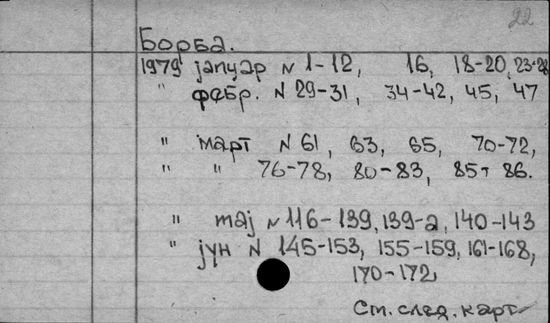 22
Борба.
1979 јануар N 1-12, 16, 18-20, 23-28
" фебр. N 29-31, 34-42, 45, 47
" март N 61, 63, 65, 70-72,
" " 76-78, 80-83, 85т 86.
" мај N 116-139, 139-а, 140-143
" јун N 145-153, 155-159, 161-168,
170-172
См. след. карт